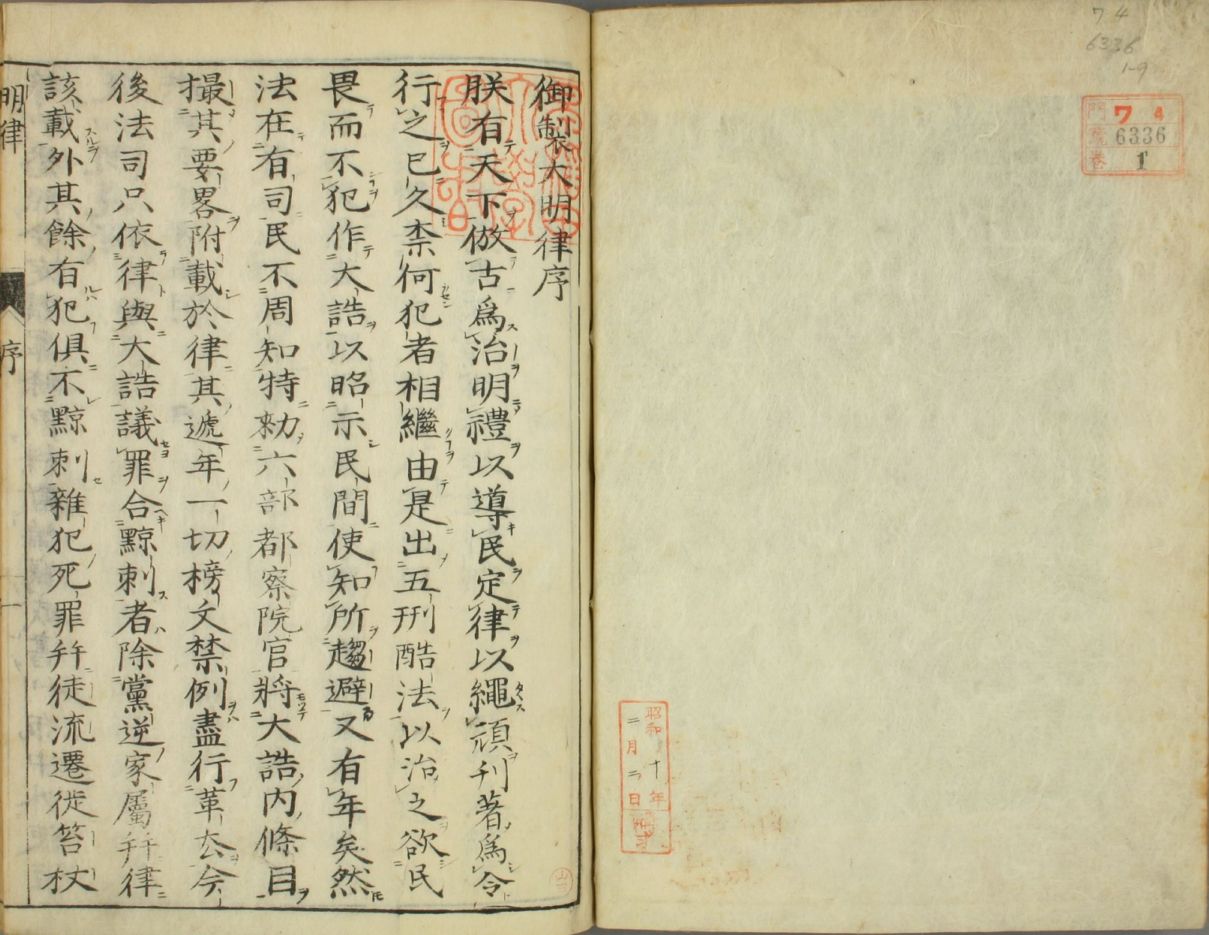 7 4
6336
1-9
門 7 4
號 6336
卷 1
昭和十年
二月二日
御製大明律序
朕有天下倣古爲治明禮以導民定律以繩頑刊著爲令
行之已久柰何犯者相繼由是出五刑酷法以治之欲民
畏而不犯作大誥以昭示民間使知所趨避又有年矣然
法在有司民不周知特敕六部都察院官將大誥内條目
撮其要畧附載於律其遞年一切榜文禁例盡行革去今
後法司只依律與大誥議罪合黥刺者除黨逆家屬幷律
該載外其餘有犯俱不黥刺雜犯死罪幷徒流遷徙笞杖
明律
序
一